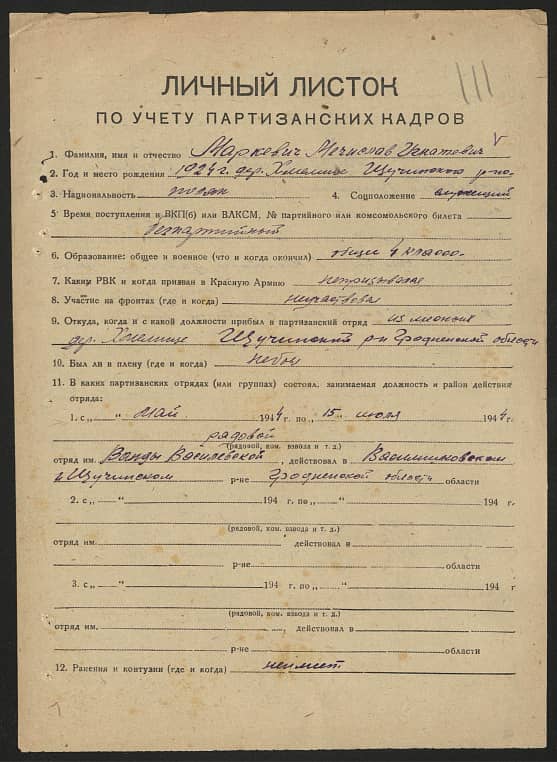 ЛИЧНЫЙ ЛИСТОК
ПО УЧЕТУ ПАРТИЗАНСКИХ КАДРОВ
1. Фамилия, имя и отчество Маркевич Мечислав Игнатевич
2. Год и место рождения 1924 г. дер. Хмелище Щучинского р-на
3. Национальность поляк 4. Соцположение служащий
5 Время поступления в ВКП(б) или ВЛКСМ, № партийного или комсомольского билета
беспартийный
6. Образование: общее и военное (что и когда окончил) общее 4 класса
7. Каким РВК и когда призван в Красную Армию непризывался
8. Участие на фронтах (где и когда) неучаствовал
9. Откуда, когда и с какой должности прибыл в партизанский отряд из
дер. Хмелище Щучинский р-н Гродненской области
10. Был ли в плену (где и когда) небыл
11. В каких партизанских отрядах (или группах) состоял, занимаемая должность и район действия
отряда:
1. с „ “ май 1944 г. по „15“ июля 1944 г.
рядовой
(рядовой, ком. взвода и т. д.)
отряд им. Ванды Василевской, действовал в Василишковском
и Щучинском р-не Гродненской области области
2. с „ “ 194 г. по „ “ 194 г.
(рядовой, ком. взвода и т. д.)
отряд им. действовал в
р-не области
3. с „ “ 194 г. по „ “ 194 г
(рядовой, ком. взвода и т. д.)
отряд им. , действовал в
р-не области
12. Ранения и контузии (где и когда) неимеет